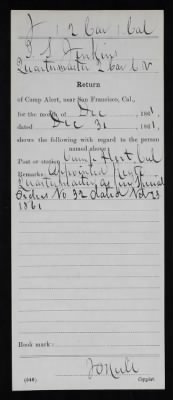 J | 2 Cav | Cal
J. S. Jenkins
Quartermaster 2 Cav C V
Return
of Camp Alert, near San Francisco, Cal.,
for the month of Dec, 1861,
dated Dec 31, 1861,
shows the following with regard to the person
named above:
Post or station Camp Alert Cal
Remarks: Appointed Regtl
Quartermaster as per Special
Orders No 32 dated Nov 23
1861
Book mark:
(646)
Copyist.